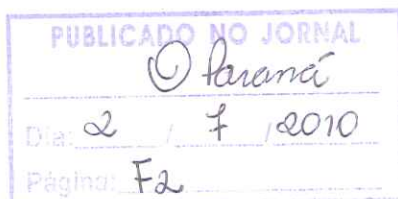 PUBLICADO NO JORNAL
O Paraná
Dia: 2 / 7 / 2010
Página: F2